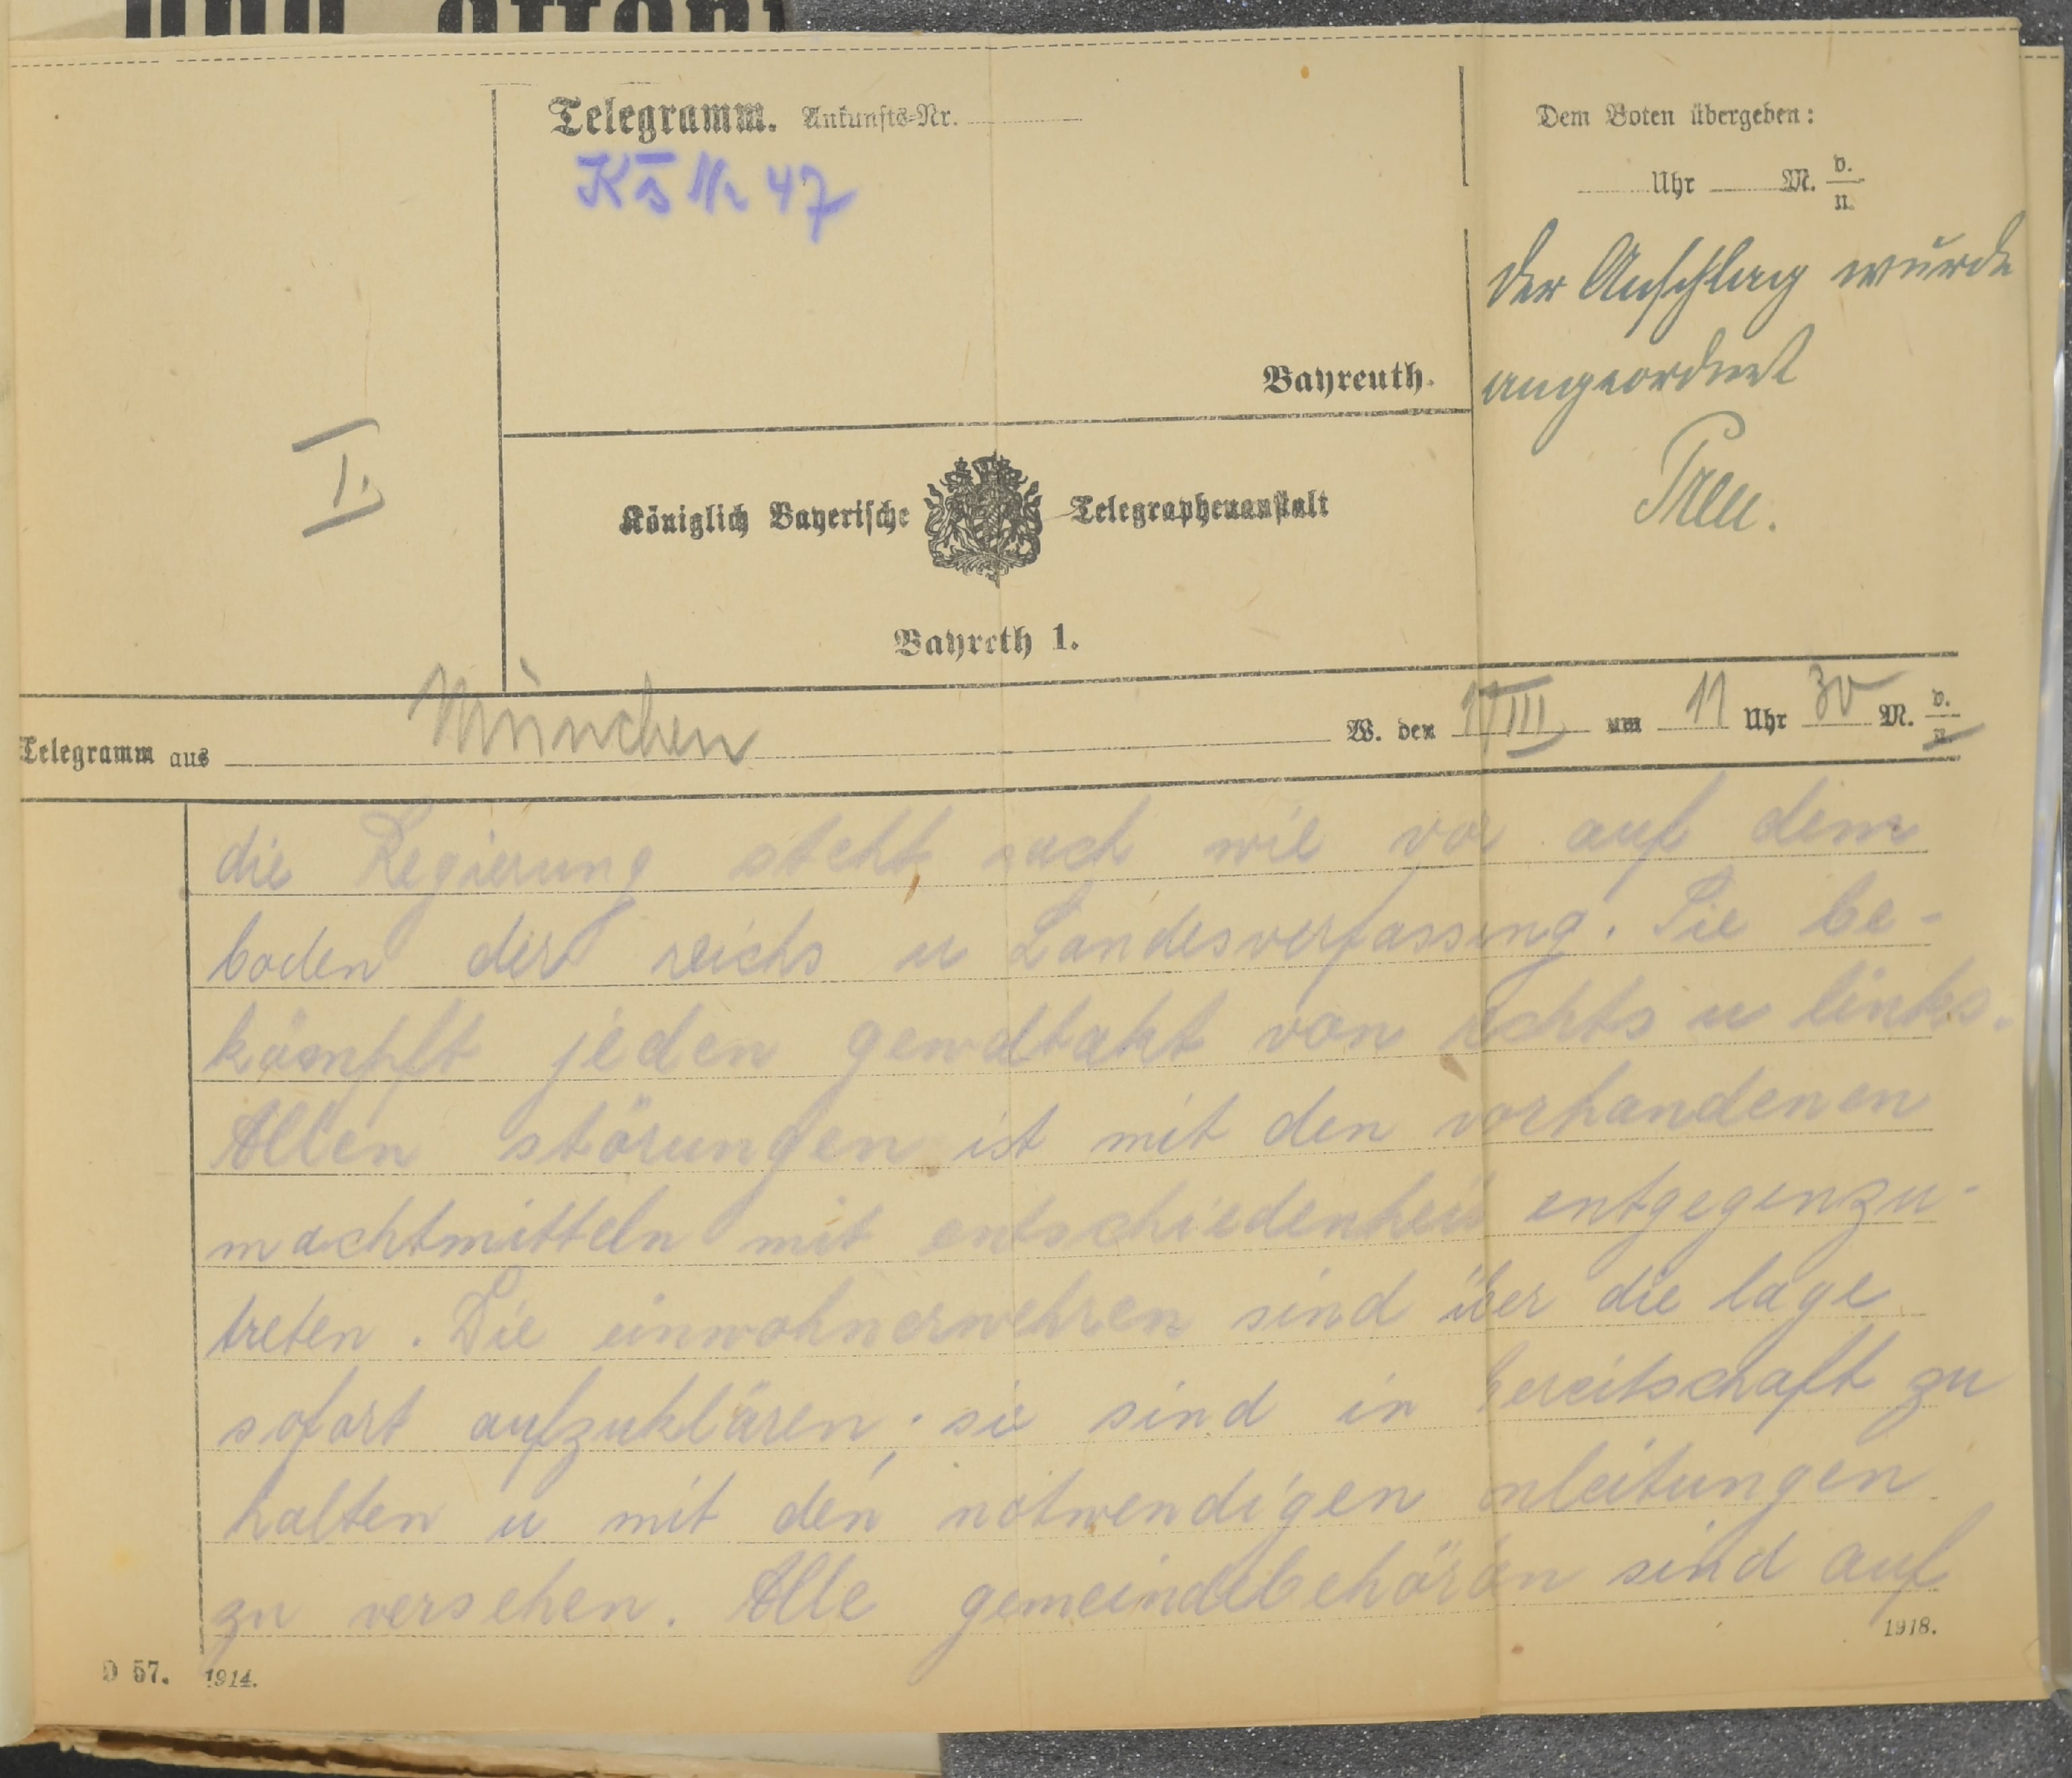 und offen
Telegramm. Ankunfts-Nr.
Nr 47
Bayreuth.
Dem Boten übergeben:
Uhr M. v./n.
Der Anschlag wurde
angeordnet
I.
Königlich Bayerische Telegraphenanstalt
Bayreth 1.
Telegramm aus München W. den 17/III um 11 Uhr 30 M. v./n.
die Regierung steht nach wie vor auf dem
boden der reichs u Landesverfassung. Sie be-
kämpft jeden gewaltakt von rechts u links.
Allen störungen ist mit den vorhandenen
machtmitteln mit entschiedenheit entgegenzu-
treten. Die einwohnerwehren sind über die lage
sofort aufzuklären; sie sind in bereitschaft zu
halten u mit den notwendigen anleitungen
zu versehen. Alle gemeindebehörden sind auf
D 57. 1914.
1918.